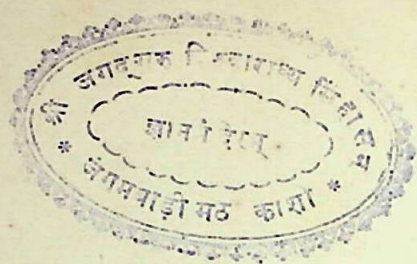 श्री जगद्गुरु विश्वाराध्य सिंहासन
ज्ञानमंदिर
* जंगमवाड़ी मठ काशी *